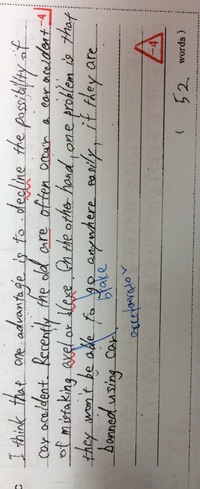 I think that one advantage is to decline the possibility of
car accident. Recently the old are often occur a car accident -4
of mistaking axel or blere. On the other hand, one problem is that
brake
accelerator
they won't be able to go anywhere easily, if they are
banned using car.
-4
( 52 words )